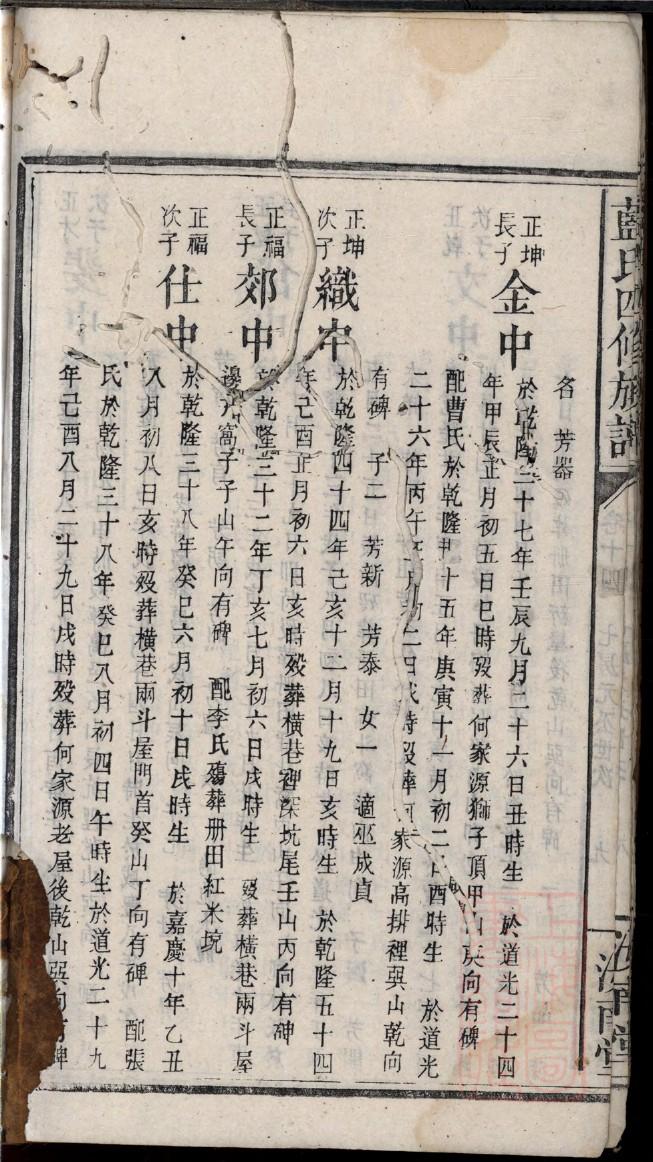 藍氏四修族譜
名 芳器
正坤長子 金中
於乾隆三十七年壬辰九月二十六日丑時生 於道光二十四
年甲辰正月初五日巳時歿葬何家源獅子頂甲山庚向有碑
配曹氏於乾隆卅十五年庚寅十一月初二日酉時生 於道光
二十六年丙午月初二日戌時歿葬何家源高排裡巽山乾向
有碑 子二 芳新 芳泰 女一 適巫成貞
正坤次子 織中
於乾隆四十四年己亥十二月十九日亥時生 於乾隆五十四
年己酉正月初六日亥時歿葬橫巷裡深坑尾壬山丙向有碑
正福長子 郊中
於乾隆三十二年丁亥七月初六日戌時生 歿葬橫巷兩斗屋
邊窩子子山午向有碑 配李氏殤葬册田紅米垸
正福次子 仕中
於乾隆三十八年癸巳六月初十日戌時生 於嘉慶十年乙丑
八月初八日亥時歿葬橫巷兩斗屋門首癸山丁向有碑 配張
氏於乾隆三十八年癸巳八月初四日午時生於道光二十九
年己酉八月二十九日戌時歿葬何家源老屋後乾山巽向有碑